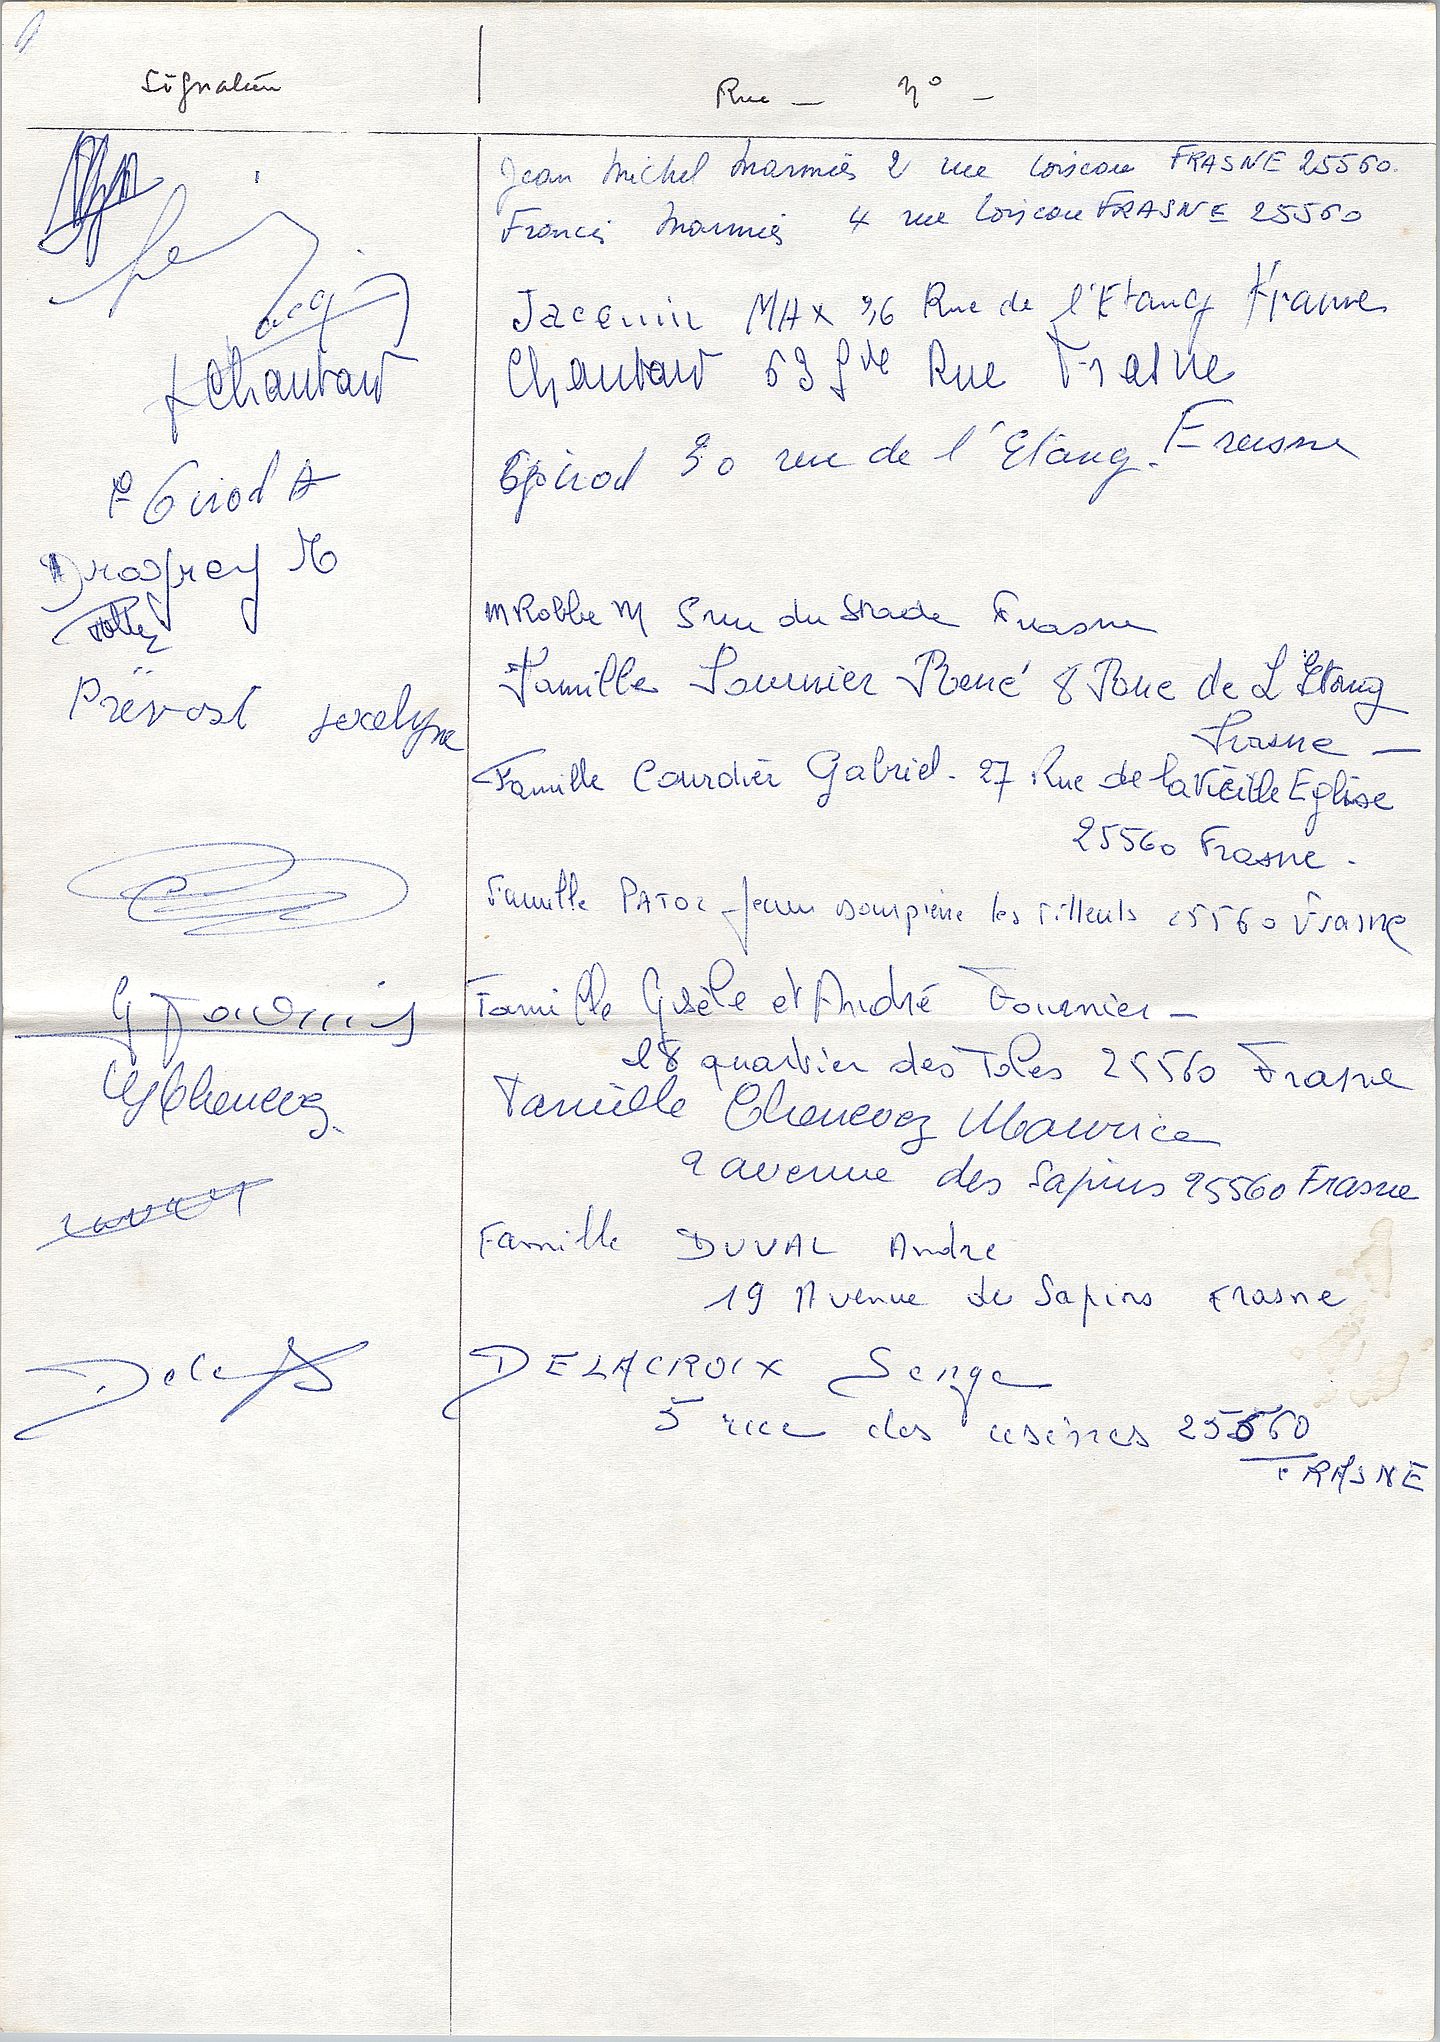 Signature
Rue — N° —
Jean Michel Marmier 2 rue Loiseau FRASNE 25560.
Francis Marmier 4 rue Loiseau FRASNE 25560
Jacquin MAX 36 Rue de l'Etang Frasne
Chantard 63 Gde Rue Frasne
Chantard
Girod 30 rue de l'Etang. Frasne
Girod A
M Robbe M 5 rue du Stade Frasne
Famille Fournier René 8 Rue de L'Etang
Frasne —
Prévost Jocelyne
Famille Courdier Gabriel - 27 Rue de la Vieille Eglise
25560 Frasne -
Famille PATOZ Jean les Tilleuls 25560 Frasne
G Fournier
Famille Gisèle et André Fournier -
18 quartier des Toles 25560 Frasne
Famille Chenevez Maurice
2 avenue des Sapins 25560 Frasne
Famille DUVAL Andre
19 Avenue de Sapins Frasne
DELACROIX Serge
5 rue des usines 25560
FRASNE